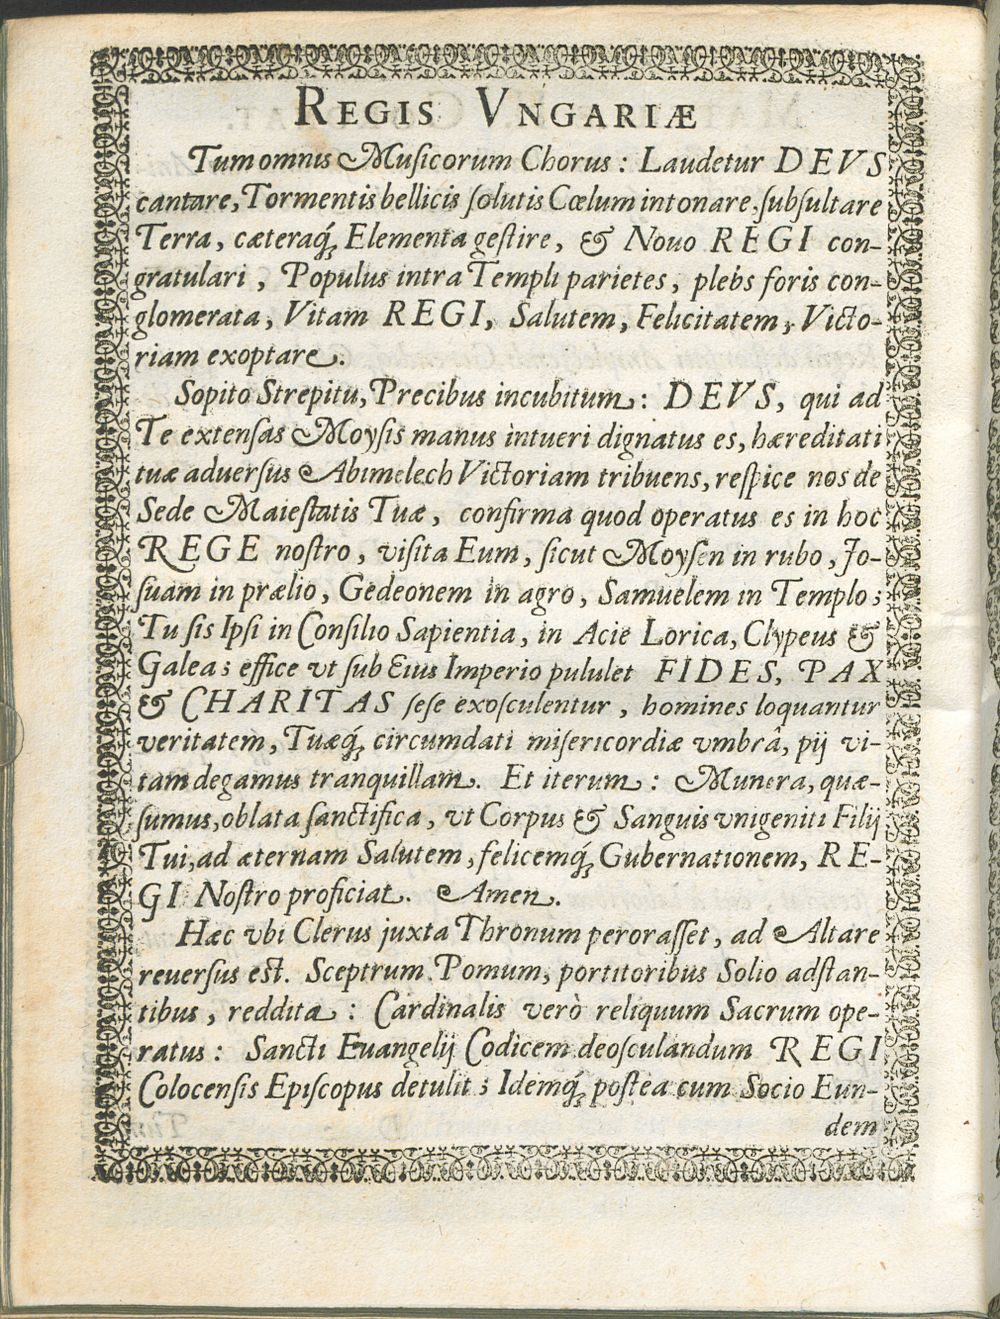 REGIS VNGARIÆ
Tum omnis Musicorum Chorus : Laudetur DEVS
cantare, Tormentis bellicis ſolutis Cœlum intonare, ſubſultare
Terra, cæteraq́; Elementa geſtire, & Nouo REGI con-
gratulari, Populus intra Templi parietes, plebs foris con-
glomerata, Vitam REGI, Salutem, Felicitatem, Victo-
riam exoptare.
Sopito Strepitu, Precibus incubitum : DEVS, qui ad
Te extenſas Moyſis manus intueri dignatus es, hæreditati
tuæ aduerſus Abimelech Victoriam tribuens, reſpice nos de
Sede Maieſtatis Tuæ, confirma quod operatus es in hoc
REGE noſtro, viſita Eum, ſicut Moyſen in rubo, Jo-
ſuam in prælio, Gedeonem in agro, Samuelem in Templo;
Tu ſis Ipſi in Conſilio Sapientia, in Acie Lorica, Clypeus &
Galea; effice vt ſub Eius Imperio pululet FIDES, PAX
& CHARITAS ſeſe exoſculentur, homines loquantur
veritatem, Tuæq́; circumdati miſericordiæ vmbrâ, pij vi-
tam degamus tranquillam. Et iterum : Munera, quæ-
ſumus, oblata ſanctifica, vt Corpus & Sanguis vnigeniti Filij
Tui, ad æternam Salutem, felicemq́; Gubernationem, RE-
GI Noſtro proficiat. Amen.
Hæc vbi Clerus juxta Thronum peroraſſet, ad Altare
reuerſus eſt. Sceptrum Pomum, portitoribus Solio adſtan-
tibus, reddita : Cardinalis verò reliquum Sacrum ope-
ratus : Sancti Euangelij Codicem deoſculandum REGI
Colocenſis Epiſcopus detulit; Idemq́; poſtea cum Socio Eun-
dem